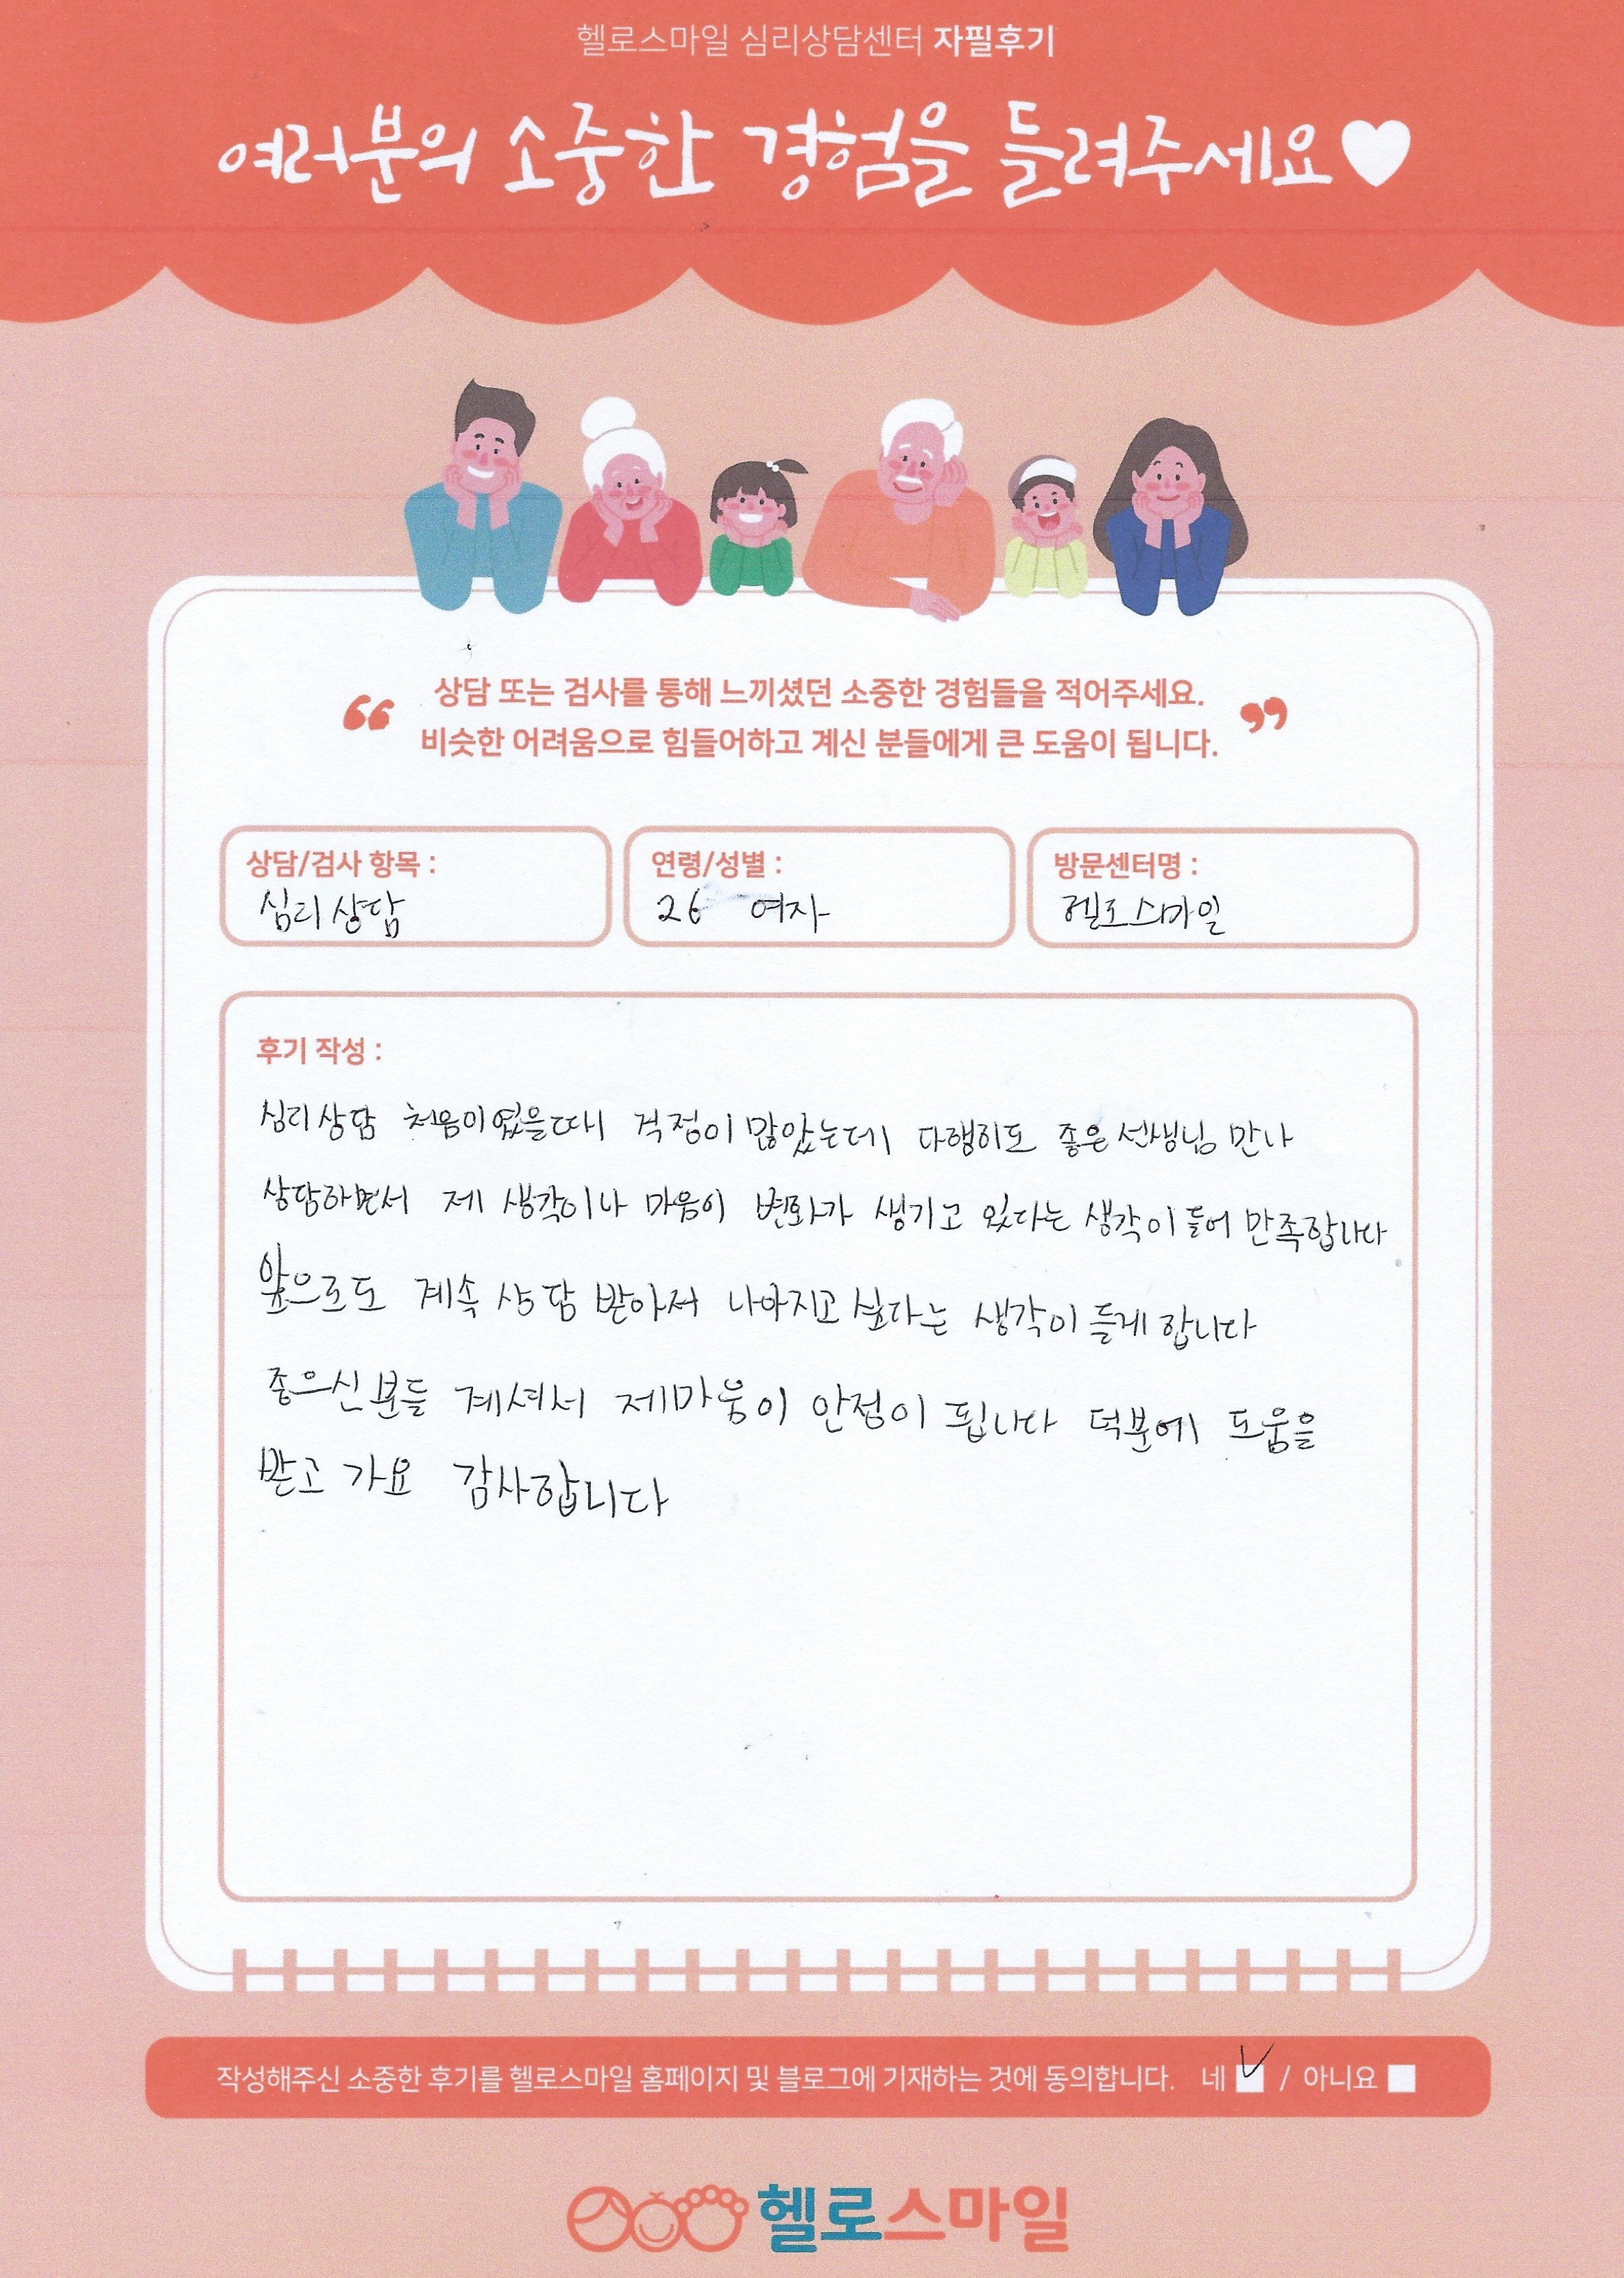 헬로스마일 심리상담센터 자필후기
여러분의 소중한 경험을 들려주세요
상담 또는 검사를 통해 느끼셨던 소중한 경험들을 적어주세요.
비슷한 어려움으로 힘들어하고 계신 분들에게 큰 도움이 됩니다.
상담/검사 항목 : 연령/성별 : 방문센터명 :
심리상담 26 여자 헬로스마일
후기 작성 :
심리상담 처음이였을때 걱정이 많았는데 다행히도 좋은 선생님 만나
상담하면서 제 생각이나 마음이 변화가 생기고 있다는 생각이 들어 만족합니다
앞으로도 계속 상담 받아서 나아지고 싶다는 생각이 들게 합니다
좋으신 분들 계셔서 제마음이 안정이 됩니다 덕분에 도움을
받고 가요 감사합니다
작성해주신 소중한 후기를 헬로스마일 홈페이지 및 블로그에 기재하는 것에 동의합니다. 네 / 아니요
헬로스마일